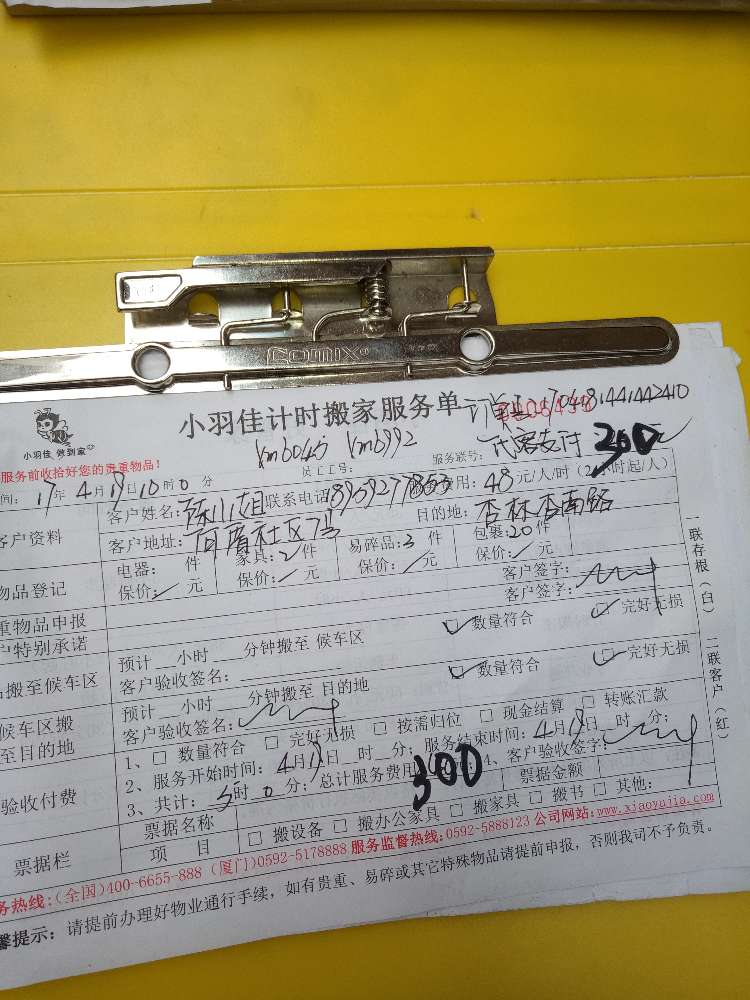 comix
小羽佳 做到家
小羽佳计时搬家服务单 订单号 70481441442410
服务前收拾好您的贵重物品!
员工工号: 服务联号: 300元
间: 17年 4月 19日 10时 0分
客户资料 客户姓名: 联系电话 用: 48元/人/时 (2小时起/人)
客户地址: 社区 目的地: 杏林杏南路
物品登记 电器: 件 家具: 2件 易碎品: 3件 包裹: 20件
保价: 元 保价: 元 保价: 元 保价: 元
重物品申报 客户签字:
户特别承诺 客户签字:
搬至候车区 预计 小时 分钟搬至 候车区 数量符合 完好无损
客户验收签名:
候车区搬至目的地 预计 小时 分钟搬至 目的地 数量符合 完好无损
客户验收签名:
验收付费 1、□ 数量符合 □ 完好无损 □ 按需归位 □ 现金结算 □ 转账汇款
2、服务开始时间: 4月19日 时 分; 服务结束时间: 4月19日 时 分;
3、共计: 3时 0分; 总计服务费用 300 4、客户验收签字:
票据栏 票据名称 票据金额
项 目 □ 搬设备 □ 搬办公家具 □ 搬家具 □ 搬书 □ 其他:
务热线:(全国)400-6655-888 (厦门)0592-5178888 服务监督热线:0592-5888123 公司网站:www.xiaoyujia.com
馨提示: 请提前办理好物业通行手续, 如有贵重、易碎或其它特殊物品请提前申报, 否则我司不予负责。
一联存根(白)
二联客户(红)